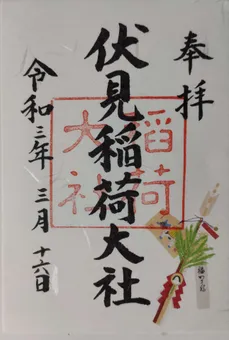 奉拝
伏見稲荷大社
稲荷
大社
令和三年三月十六日